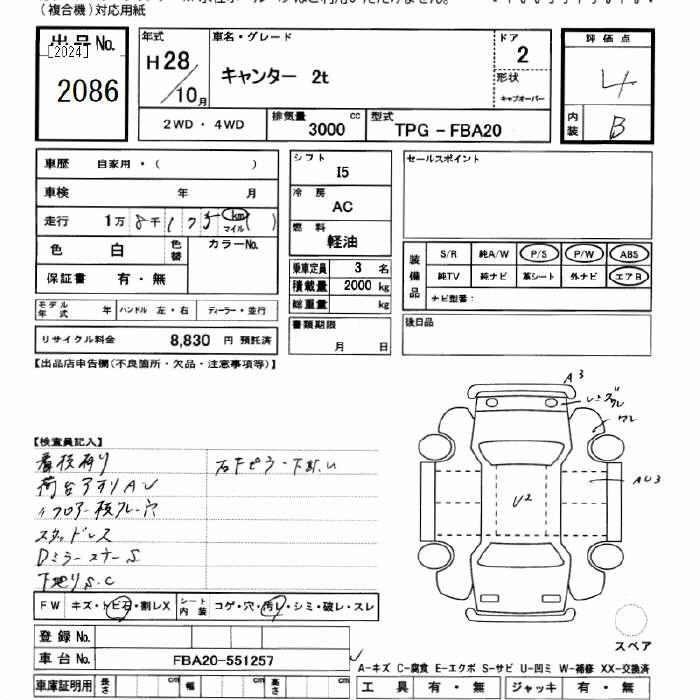 (複合機)対応用紙
出品No.
[2024]
2086
年式
H28/10月
車名・グレード
キャンター 2t
ドア
2
形状
キャブオーバー
2WD・4WD
排気量
3000 cc
型式
TPG-FBA20
評価点
4
内装
B
車歴 自家用・( )
車検 年 月
走行 1万8千175 km マイル
色 白 色替 カラーNo.
保証書 有・無
モデル年式 年 ハンドル 左・右 ディーラー・並行
リサイクル料金 8,830 円 預託済
シフト
I5
冷房
AC
燃料
軽油
乗車定員 3 名
積載量 2000 kg
総重量 kg
書類期限
月 日
セールスポイント
装備品
S/R 純A/W P/S P/W ABS
純TV 純ナビ 革シート 外ナビ エアB
ナビ型番:
後日品
【出品店申告欄(不良箇所・欠品・注意事項等)】
【検査員記入】
看板有り
荷台アオリAU
〃フロアー板ワレ・穴
スタッドレス
DミラーステーS
下廻りS.C
A3
ワレ
U2
AU3
FW キズ・トビ石・割レX
シート内装 コゲ・穴・汚レ・シミ・破レ・スレ
登録No.
車台No. FBA20-551257
スペア
A-キズ C-腐食 E-エクボ S-サビ U-凹ミ W-補修 XX-交換済
車庫証明用 長さ cm 幅 cm 高さ cm
工具 有・無 ジャッキ 有・無